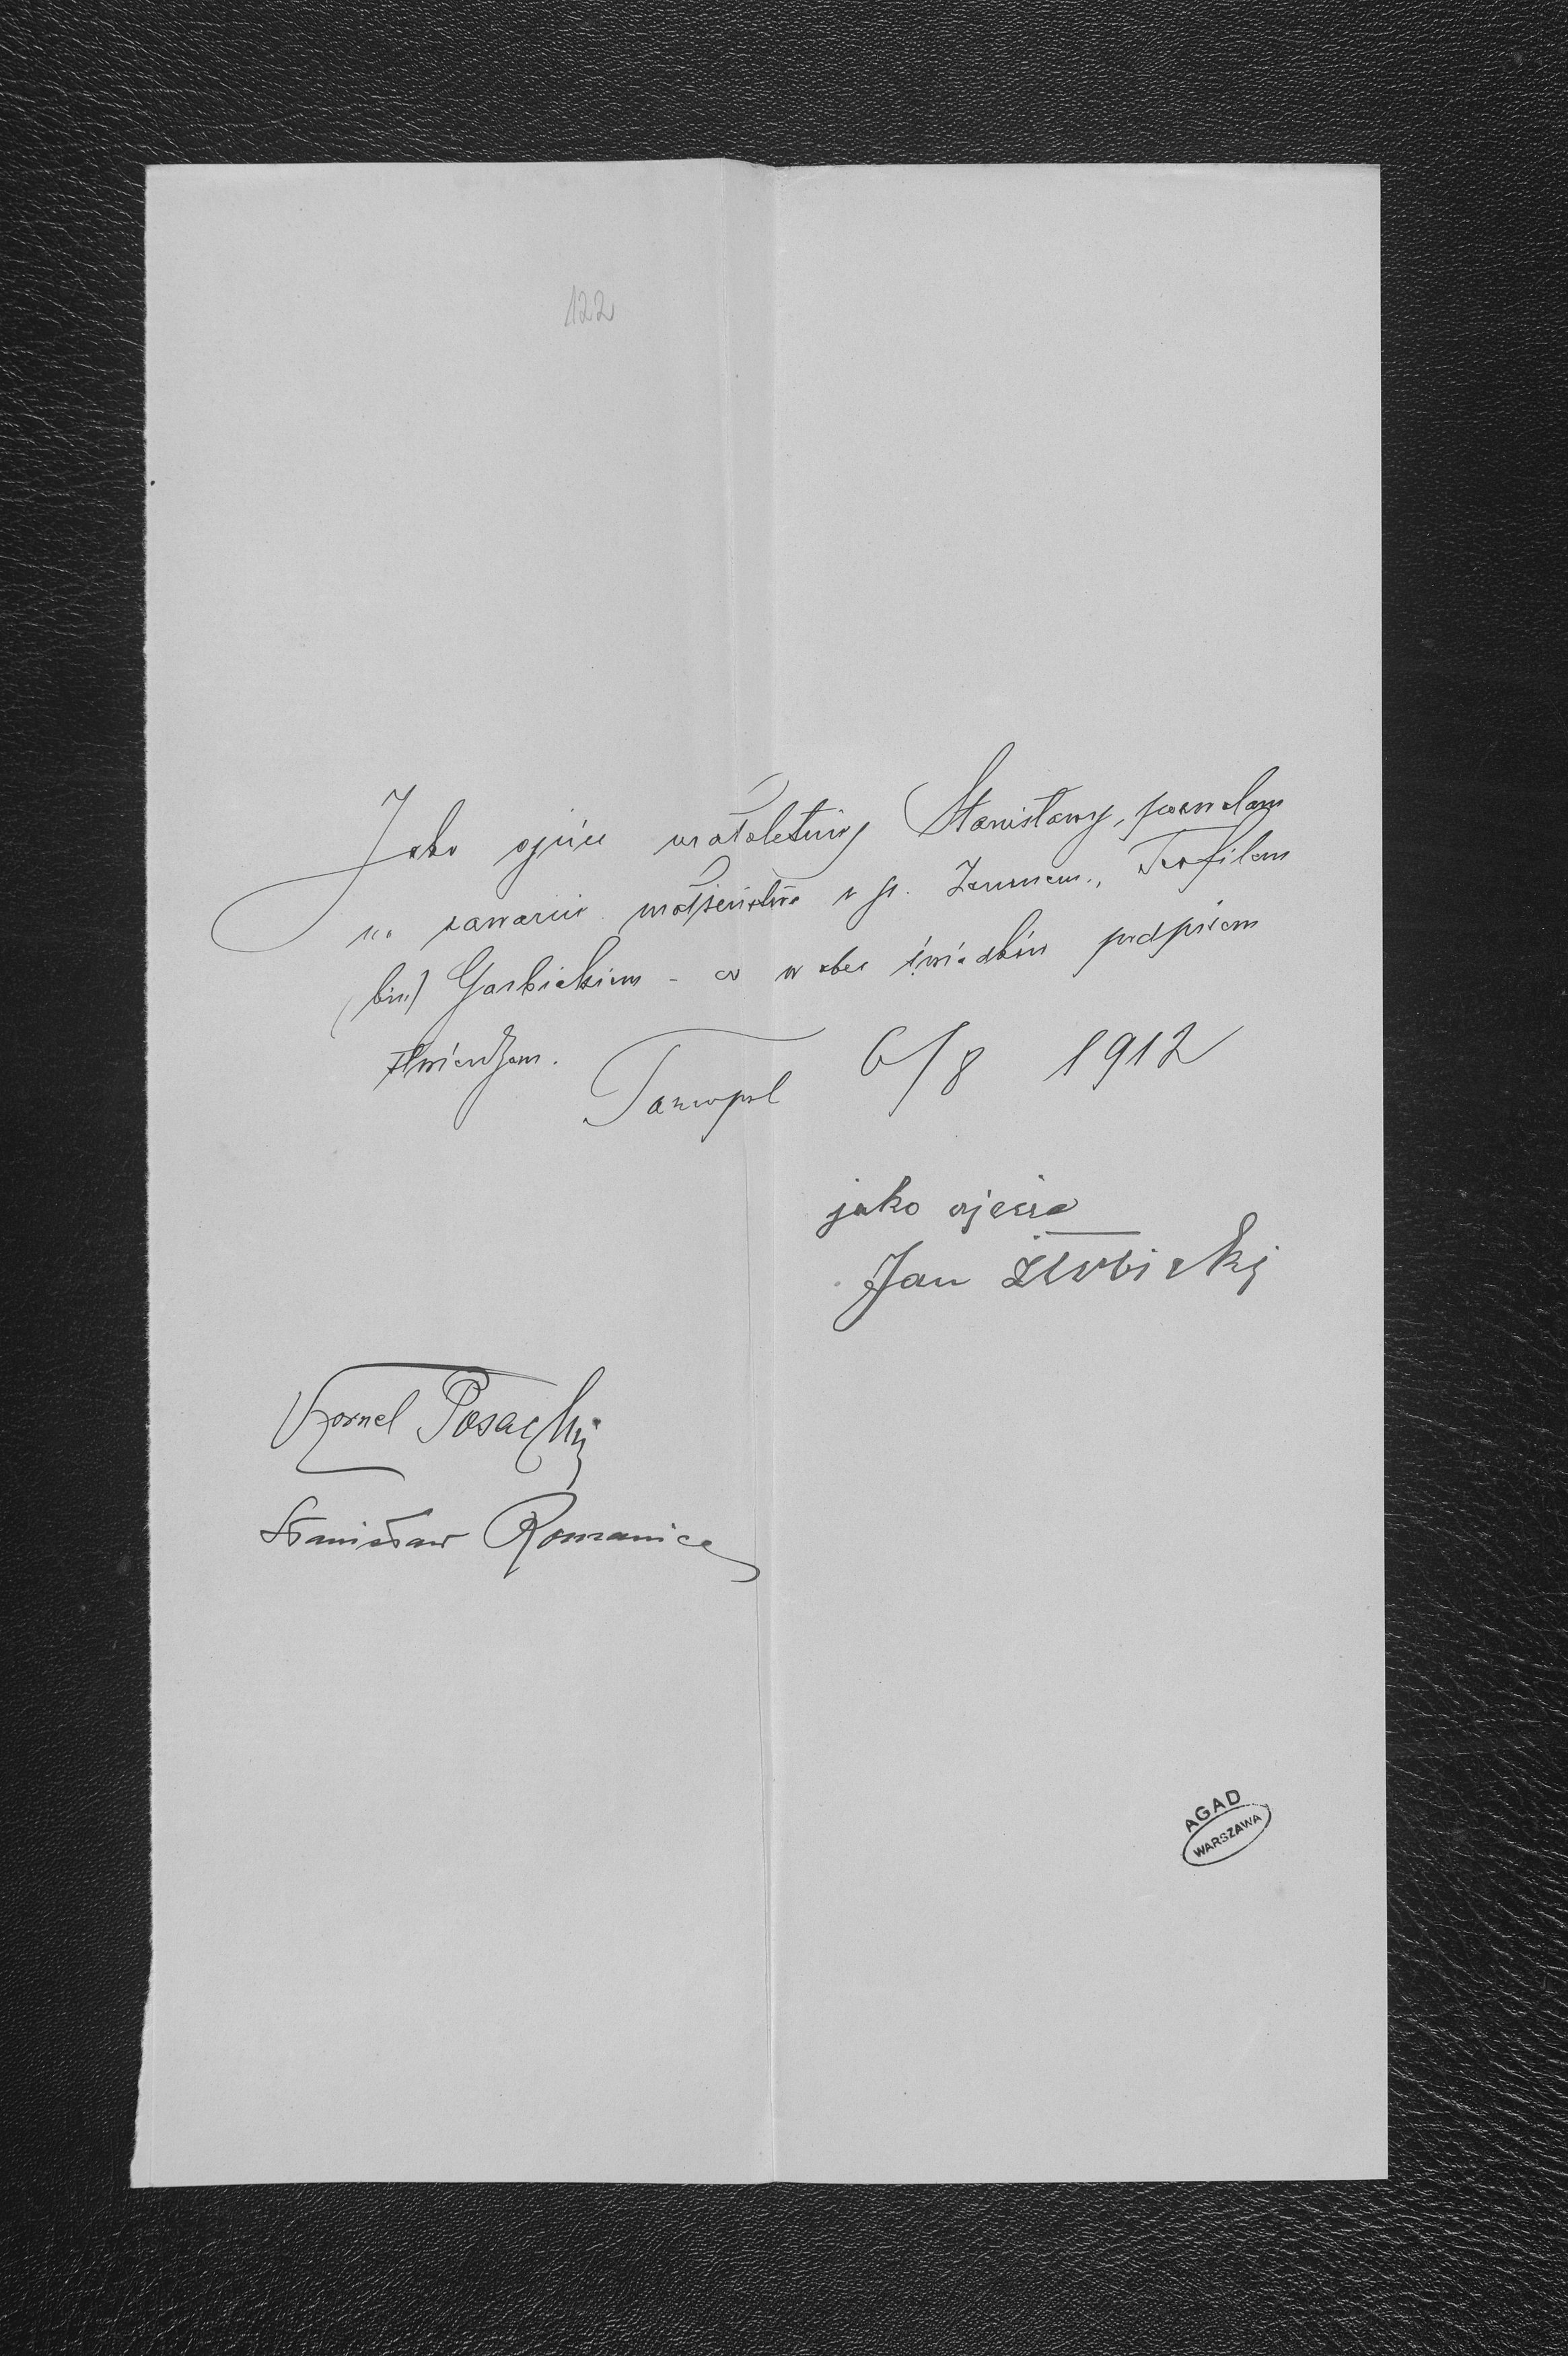 122
Jako ojciec małoletniej Stanisławy, pozwalam
na zawarcie małżeństwa z p. Janem, Teofilem
(bin) Garbickim - co w obec świadków podpisem
stwierdzam.
Tarnopol 6/8 1912
jako ojciec
Jan Żłobicki
Kornel Posacki
Stanisław Romanice
AGAD
WARSZAWA